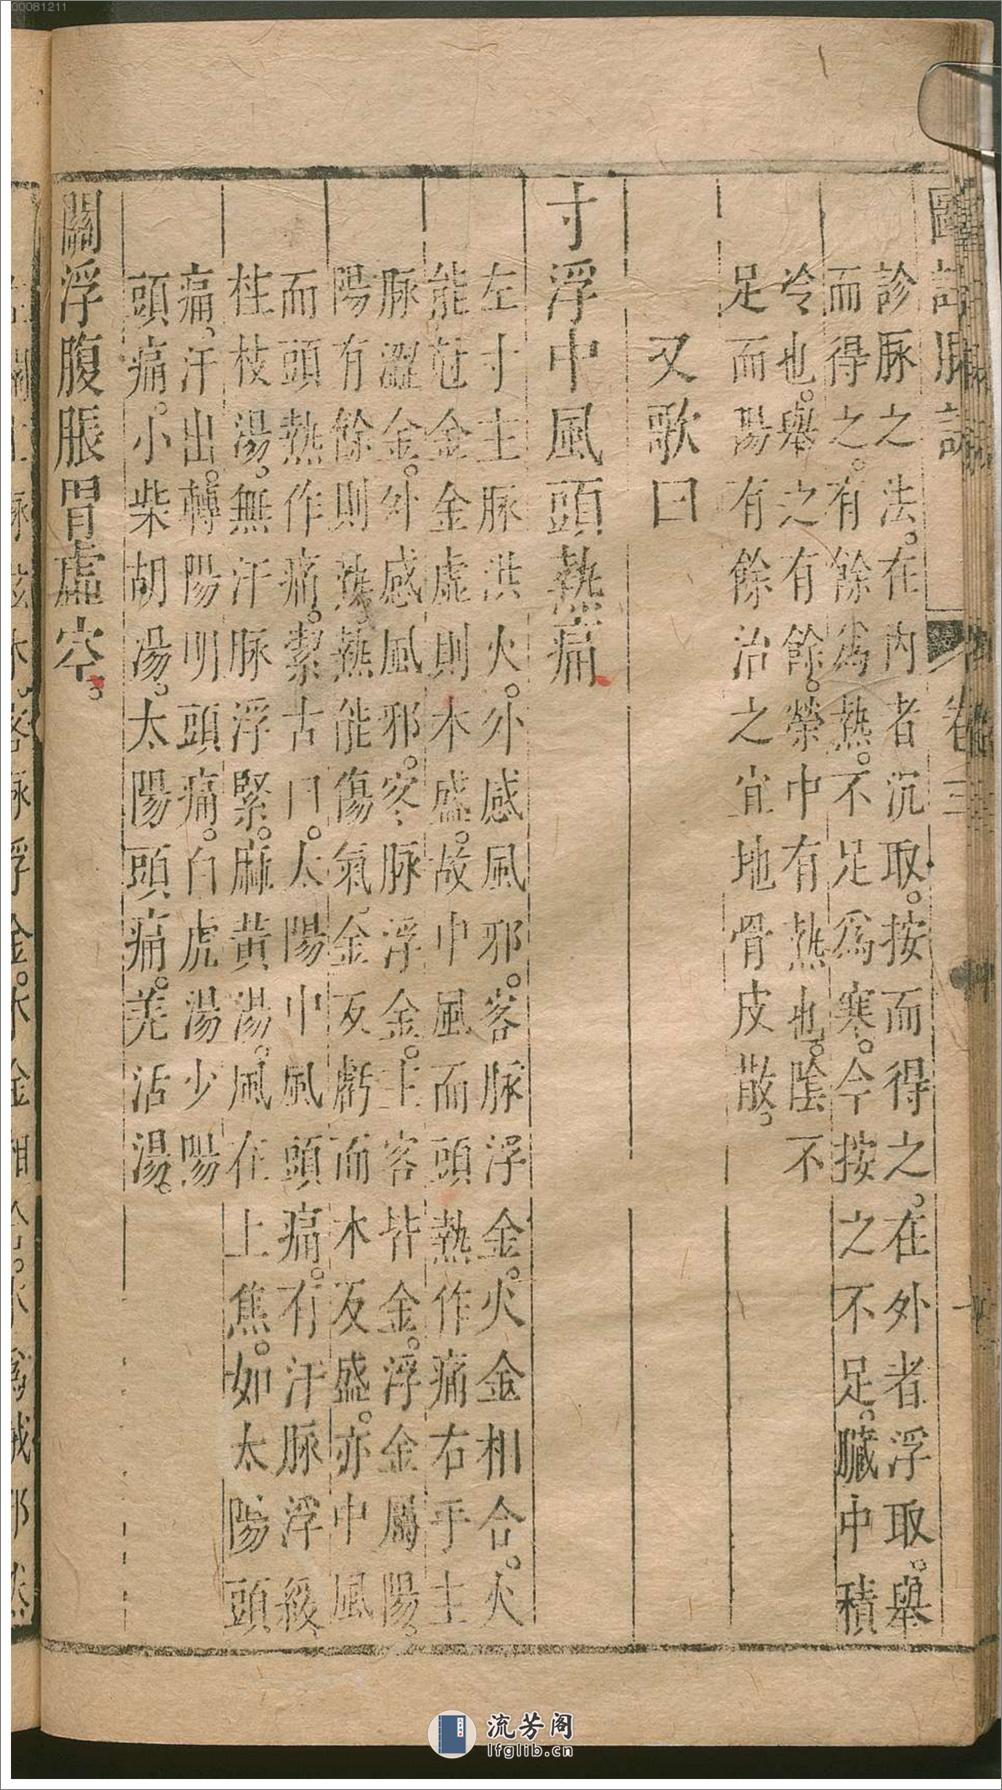 00081211
圖註脉訣 卷三
診脉之法。在內者沉取。按而得之。在外者浮取。舉
而得之。有餘爲熱。不足爲寒。今按之不足。臟中積
冷也。舉之有餘。榮中有熱也。陰不
足而陽有餘治之宜地骨皮散。
又歌曰
寸浮中風頭熱痛
左寸主脉洪火。外感風邪。客脉浮金。火金相合。火
能尅金金虛則木盛。故中風而頭熱作痛右手主
脉澀金。外感風邪。客脉浮金。主客皆金。浮金屬陽。
陽有餘則熱熱能傷氣。金反虧而木反盛。亦中風
而頭熱作痛。潔古曰。太陽中風頭痛。有汗脉浮緩、
桂枝湯。無汗脉浮緊。麻黃湯。風在上焦。如太陽頭
痛。汗出。轉陽明頭痛。白虎湯少陽
頭痛。小柴胡湯。太陽頭痛。羌活湯。
關浮腹脹胃虛空。
流芳阁
lfglib.cn